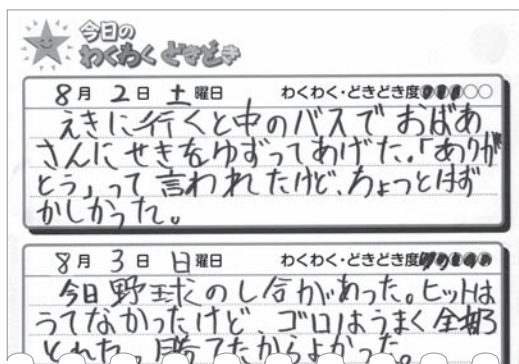 今日の
わくわく どきどき
8月 2日 土曜日 わくわく・どきどき度●●●○○
えきに行くと中のバスで おばあ
さんにせきをゆずってあげた。「ありが
とう」って言われたけど、ちょっとはず
かしかった。
8月 3日 日曜日 わくわく・どきどき度●●●●●
今日野球のし合があった。ヒットは
うてなかったけど、ゴロはうまく全部
とれた。勝てたからよかった。